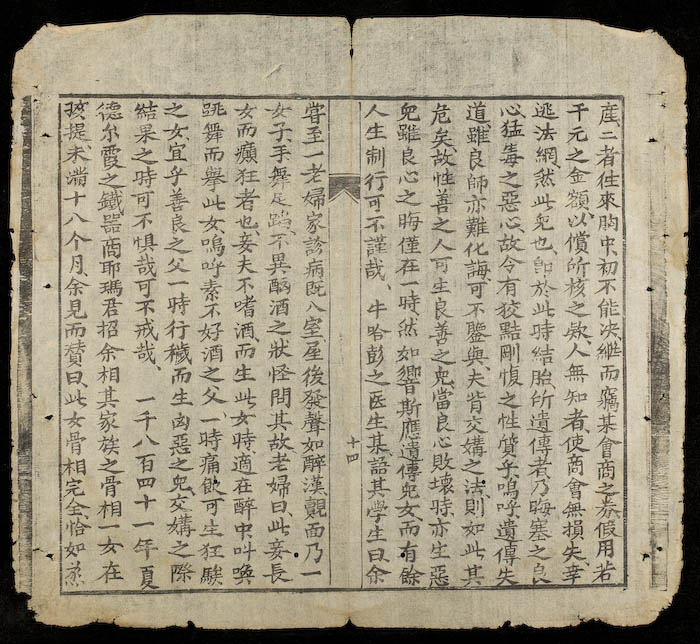 産、二者往來胸中、初不能決、継而竊其會商之券、假用若
干元之金額、以償所核之欵、人無知者、使商會無損失、幸
逃法網、然此兒也、卽於此時結胎、所遺傳者、乃晦塞之良
心、猛毒之惡心、故令有狡黠剛愎之性質乎、嗚呼、遺傳失
道、雖良師亦難化誨、可不鑒與、夫肖交媾之法則如此、其
危矣、故性善之人、可生良善之兒、當良心敗壞時、亦生惡
兒、雖良心之晦僅在一時、然如響斯應、遺傳兒女而有餘、
人生制行、可不謹哉、牛哈彭之医生某、語其學生曰、余
十四
嘗至一老婦家診病、既入室、屋後發聲如醉漢、覿面乃一
女子、手舞足蹈、不異酗酒之狀、怪問其故、老婦曰、此妾長
女而癲狂者也、妾夫不嗜酒、而生此女時、適在醉中、叫喚
跳舞而擧此女、嗚呼、素不好酒之父、一時痛飮、可生狂騃
之女、宜乎善良之父、一時行穢、而生凶惡之兒、交媾之際、
結果之時、可不惧哉、可不戒哉、一千八百四十一年夏
德尔霞之鐵器商耶瑪君、招余相其家族之骨相、一女在
孩提、未滿十八个月、余見而賛曰、此女骨相完全、恰如蒸